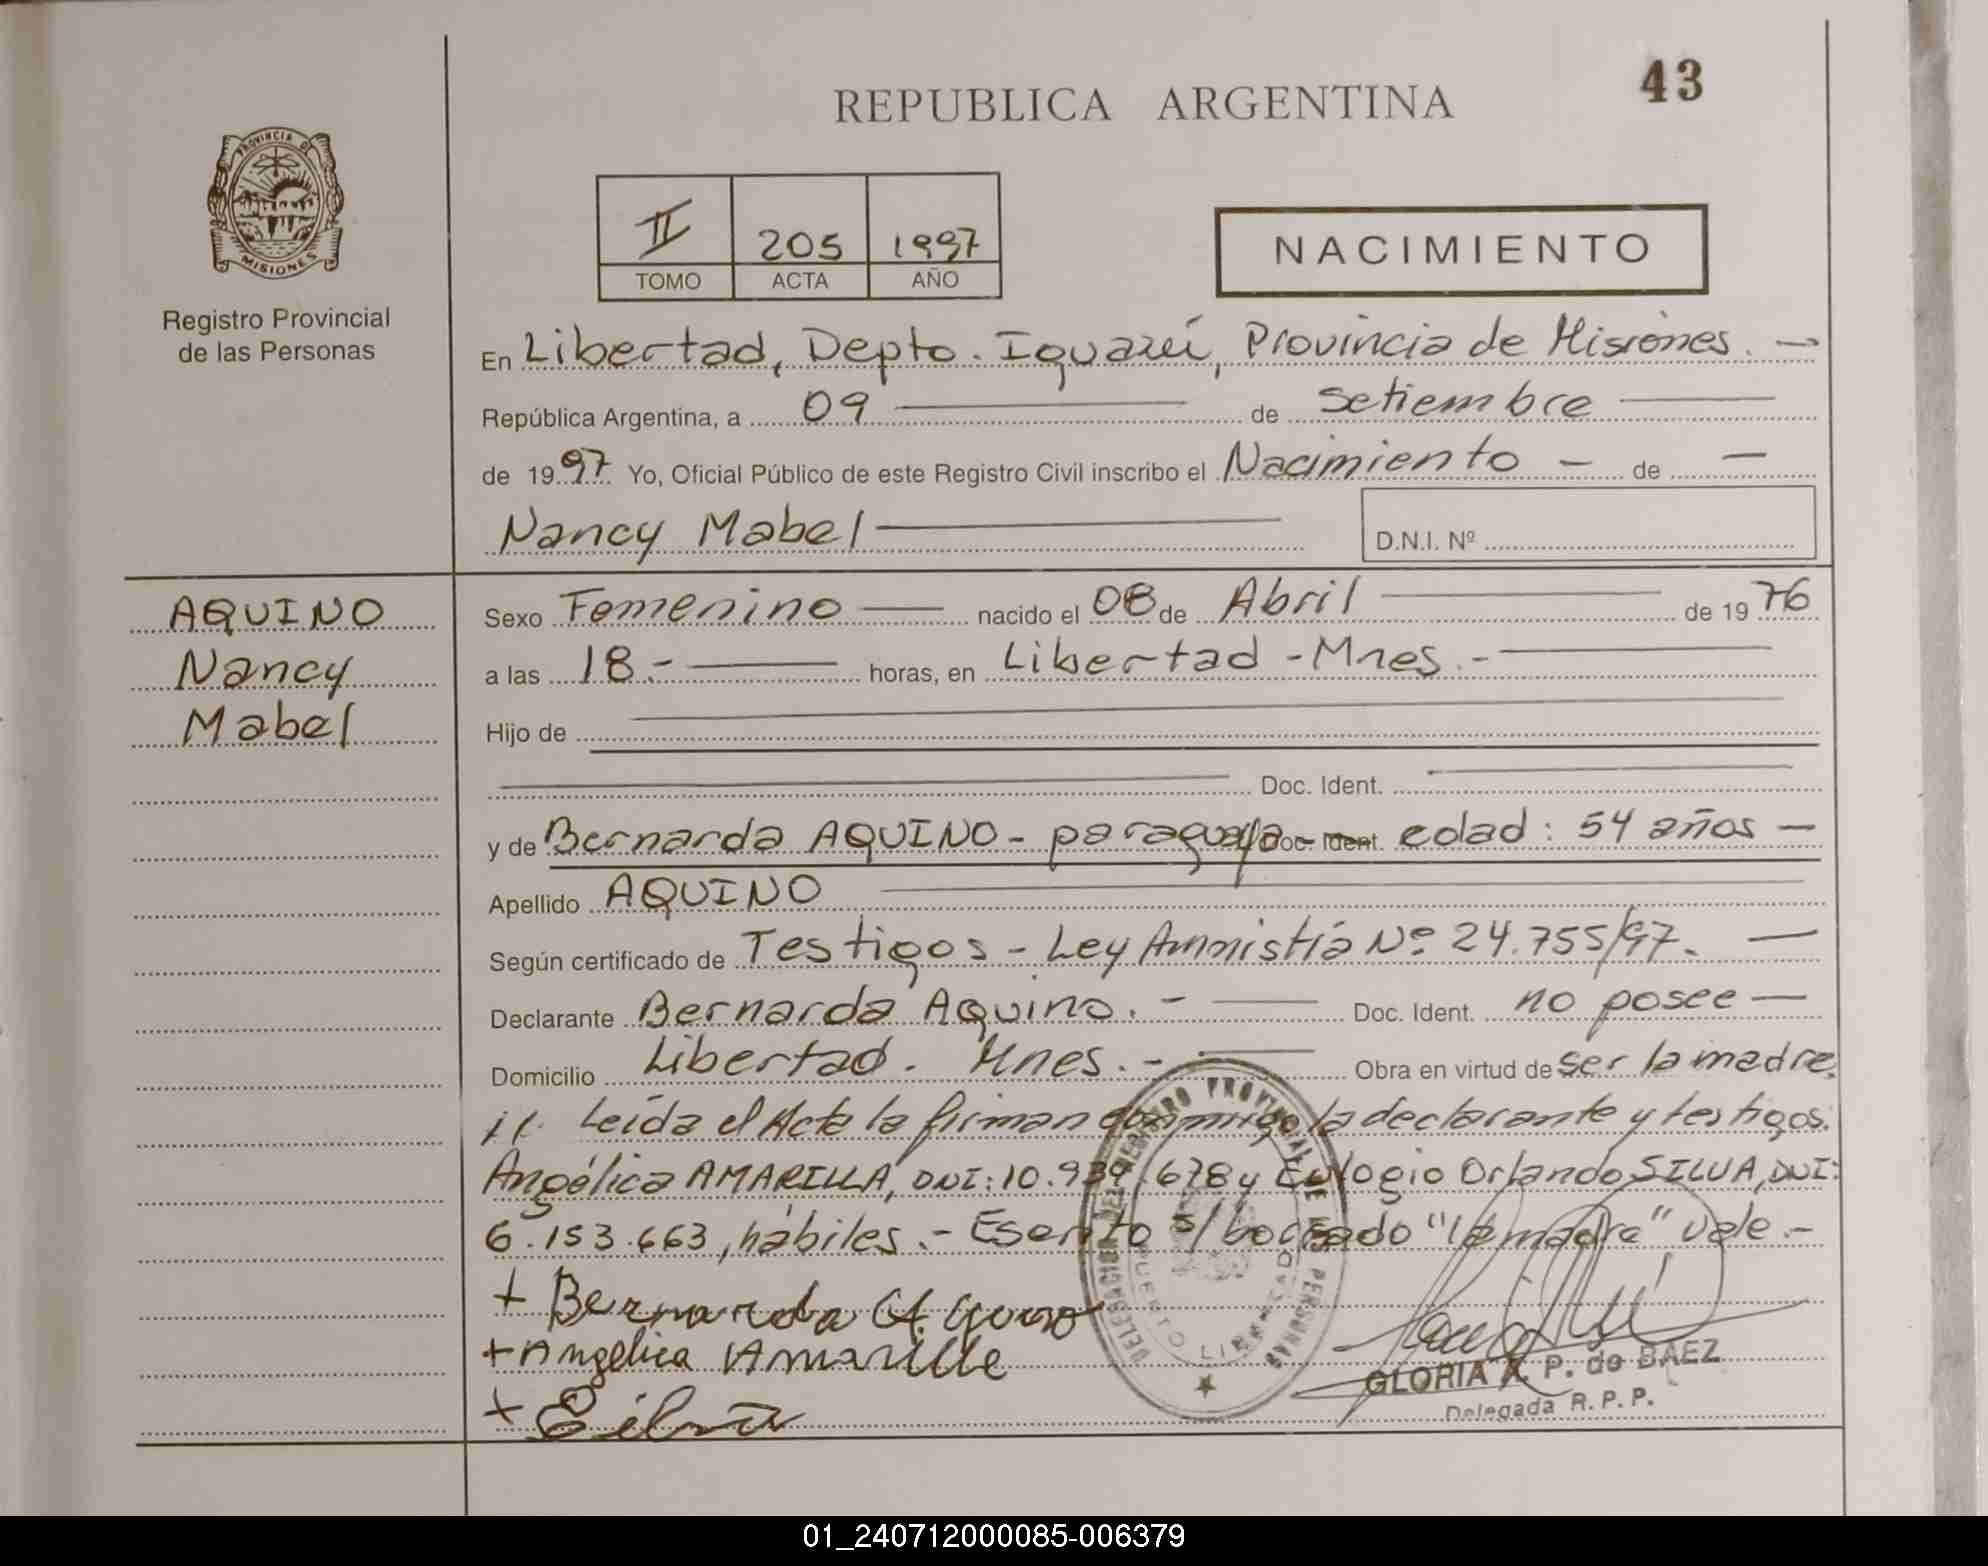 REPUBLICA ARGENTINA
43
PROVINCIA DE
MISIONES
Registro Provincial
de las Personas
II 205 1997
TOMO ACTA AÑO
NACIMIENTO
En Libertad, Depto. Iguazú, Provincia de Misiones.
República Argentina, a 09 de setiembre
de 1997 Yo, Oficial Público de este Registro Civil inscribo el Nacimiento - de -
Nancy Mabel
D.N.I. Nº
AQUINO
Nancy
Mabel
Sexo Femenino nacido el 08 de Abril de 1976
a las 18.- horas, en Libertad - Mnes.-
Hijo de
Doc. Ident.
y de Bernarda AQUINO - paraguaya - Doc. Ident. edad: 54 años -
Apellido AQUINO
Según certificado de Testigos - Ley Amnistía Nº 24.755/97.
Declarante Bernarda Aquino.- Doc. Ident. no posee
Domicilio Libertad. Mnes.- Obra en virtud de ser la madre.
Leída el Acta la firman conmigo la declarante y testigos.
Angélica AMARILLA, DNI: 10.939.678 y Eulogio Orlando SILVA, DNI:
6.153.663, hábiles.- Escrito s/ borrado "la madre" vale.-
+ Bernarda Aquino
+ Angelica Amarille
+ Silva
DELEGACION DEL REGISTRO PROVINCIAL DE LAS PERSONAS
PUERTO LIBERTAD
GLORIA X. P. de BAEZ
Delegada R. P. P.
01_240712000085-006379